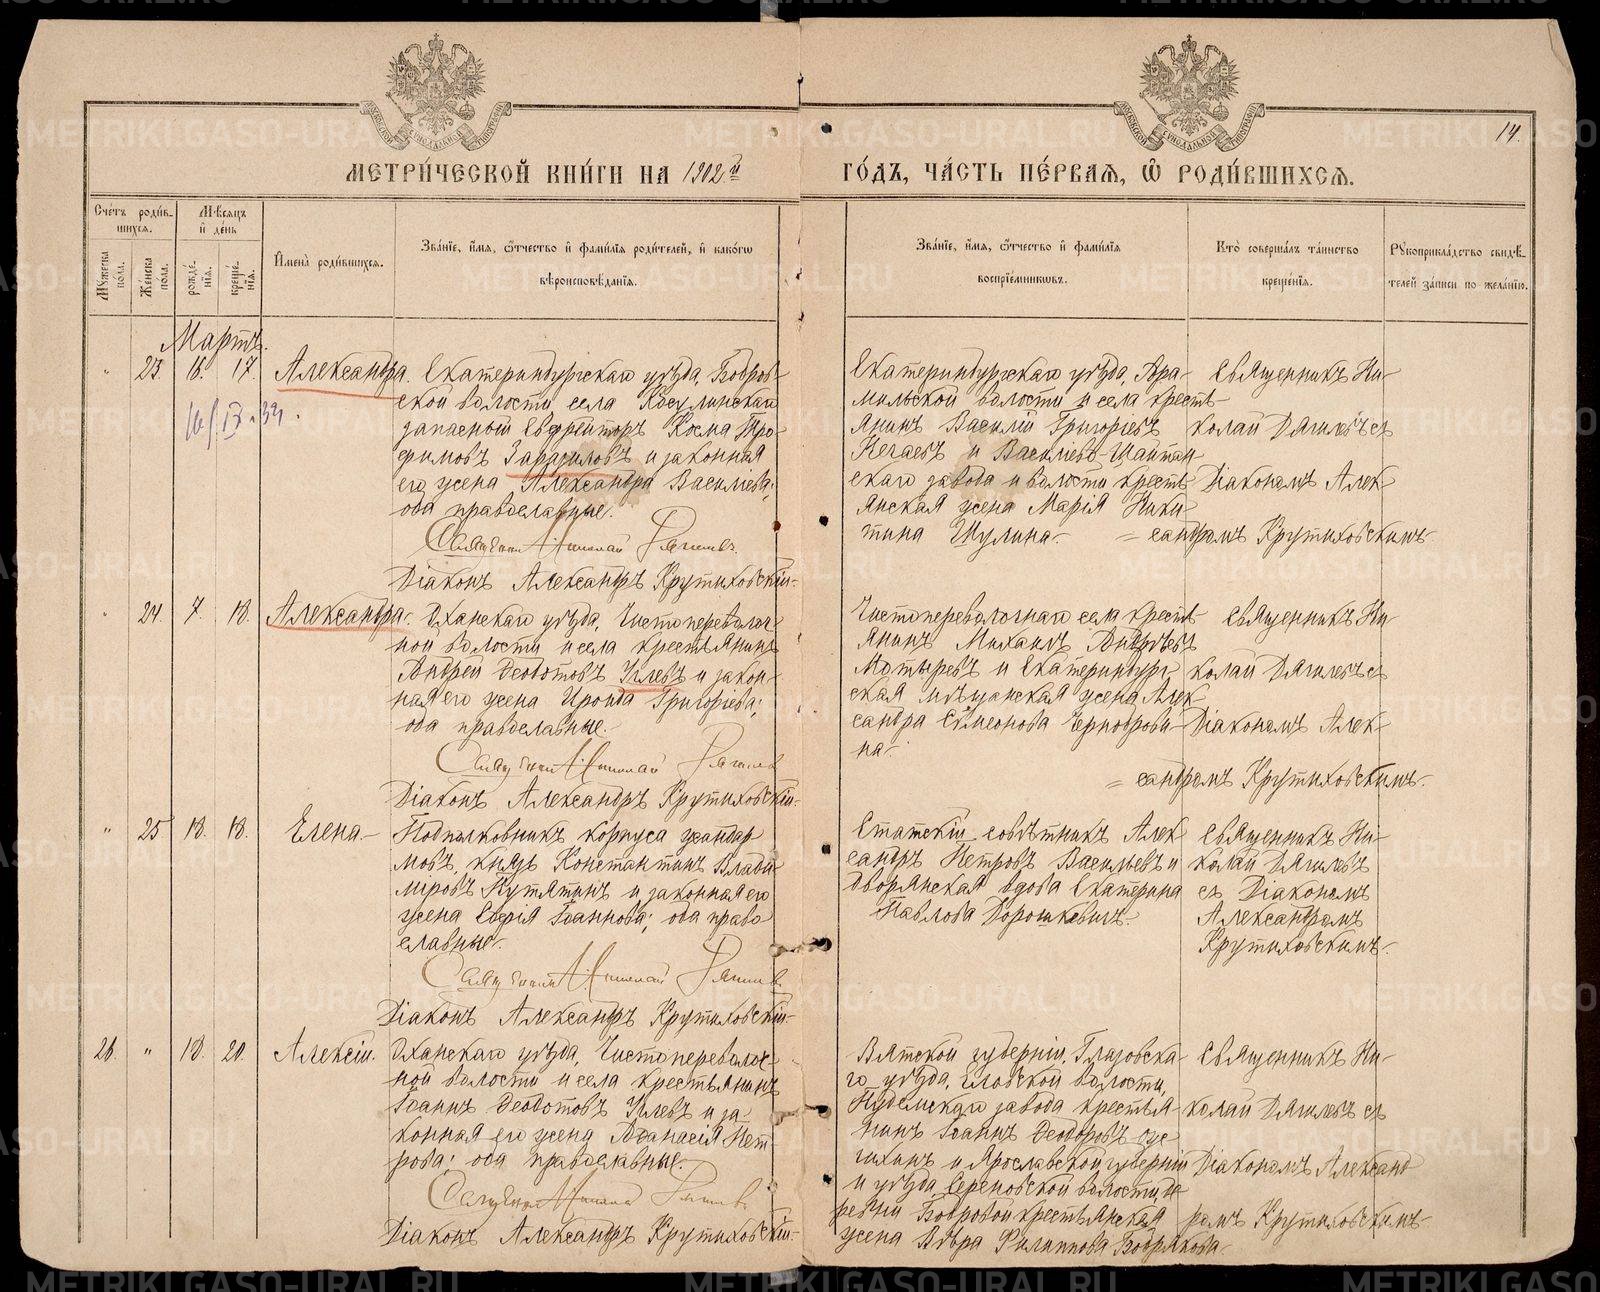 14.
МЕТРИ́ЧЕСКОЙ КНИ́ГИ НА 1902й ГО́ДЪ, ЧА́СТЬ ПЕ́РВАЯ, Ѡ҆ РОДИ́ВШИХСЯ.
Сче́тъ роди́вшихся.
Мꙋ́жеска по́ла.
Же́нска по́ла.
Мѣ́сяцъ и҆ де́нь
рожде́нїя.
креще́нїя.
И҆мена̀ роди́вшихся.
Зва́нїе, и҆́мя, ѻ҆́тчество и҆ фами́лїя роди́телей, и҆ како́гѡ
вѣроисповѣ́данїя.
Зва́нїе, и҆́мя, ѻ҆́тчество и҆ фами́лїя
воспрїе́мникѡвъ.
Кто̀ соверша́лъ та́инство
креще́нїя.
Рꙋкоприкла́дство свидѣ́-
телей за́писи по жела́нїю.
Мартъ.
" 23. 16. 17. Александра.
Екатеринбургскаго уѣзда, Бобров-
ской волости села Косулинскаго
запасный Ефрейторъ Косма Тро-
фимовъ и законная
его жена Александра Васильева;
оба православные.
Священникъ Николай Дягилевъ
Діаконъ Александръ Крутиховскій.
Екатеринбургскаго уѣзда, Ара-
мильской волости и села кресть-
янинъ Василій Григорьевъ
и Васильево-Шайтан
скаго завода и волости кресть
янская жена Марія Ники
тина Шулина.
Священникъ Ни-
колай Дягилевъ съ
Діакономъ Алек-
= сандромъ Крутиховскимъ.
" 24. 7. 18. Александра.
Оханскаго уѣзда, Чистопереволоч-
ной волости и села крестьянинъ
Андрей Ѳеодотовъ Углевъ и закон-
ная его жена Ираида Григорьева;
оба православные.
Священникъ Николай Дягилевъ
Діаконъ Александръ Крутиховскій.
Чистопереволочнаго села кресть
янинъ Михаилъ Андреевъ
Мотыревъ и Екатеринбург
ская мѣщанская жена Алек
сандра Симеонова Черноброви-
на.
Священникъ Ни-
колай Дягилевъ съ
Діакономъ Алек-
= сандромъ Крутиховскимъ.
" 25 18. 18. Елена.
Подполковникъ корпуса жандар
мовъ, князь Константинъ Влади
міровъ Кутятинъ и законная его
жена Софія Іоаннова; оба право
славные.
Священникъ Николай Дягилевъ
Діаконъ Александръ Крутиховскій.
Статскій совѣтникъ Алек
сандръ Петровъ Васильевъ и
дворянская вдова Екатерина
Павлова Дорошкевичъ.
Священникъ Ни-
колай Дягилевъ
съ Діакономъ
Александромъ
Крутиховскимъ.
26. " 18. 20. Алексій.
Оханскаго уѣзда, Чистопереволоч
ной волости и села крестьянинъ
Іоаннъ Ѳеодотовъ Углевъ и за-
конная его жена Аѳанасія Пет
рова; оба православные.
Священникъ Николай Дягилевъ
Діаконъ Александръ Крутиховскій.
Вятской губерніи, Глазовска-
го уѣзда, волости,
Пудемскаго завода крестья-
нинъ Іоаннъ Ѳеодоровъ
и Ярославской губерніи
и уѣзда волости, де
ревни Бобровой крестьянская
жена Вѣра Филиппова Бобрякова.
Священникъ Ни-
колай Дягилевъ съ
Діакономъ Александ
ромъ Крутиховскимъ.
METRIKI.GASO-URAL.RU